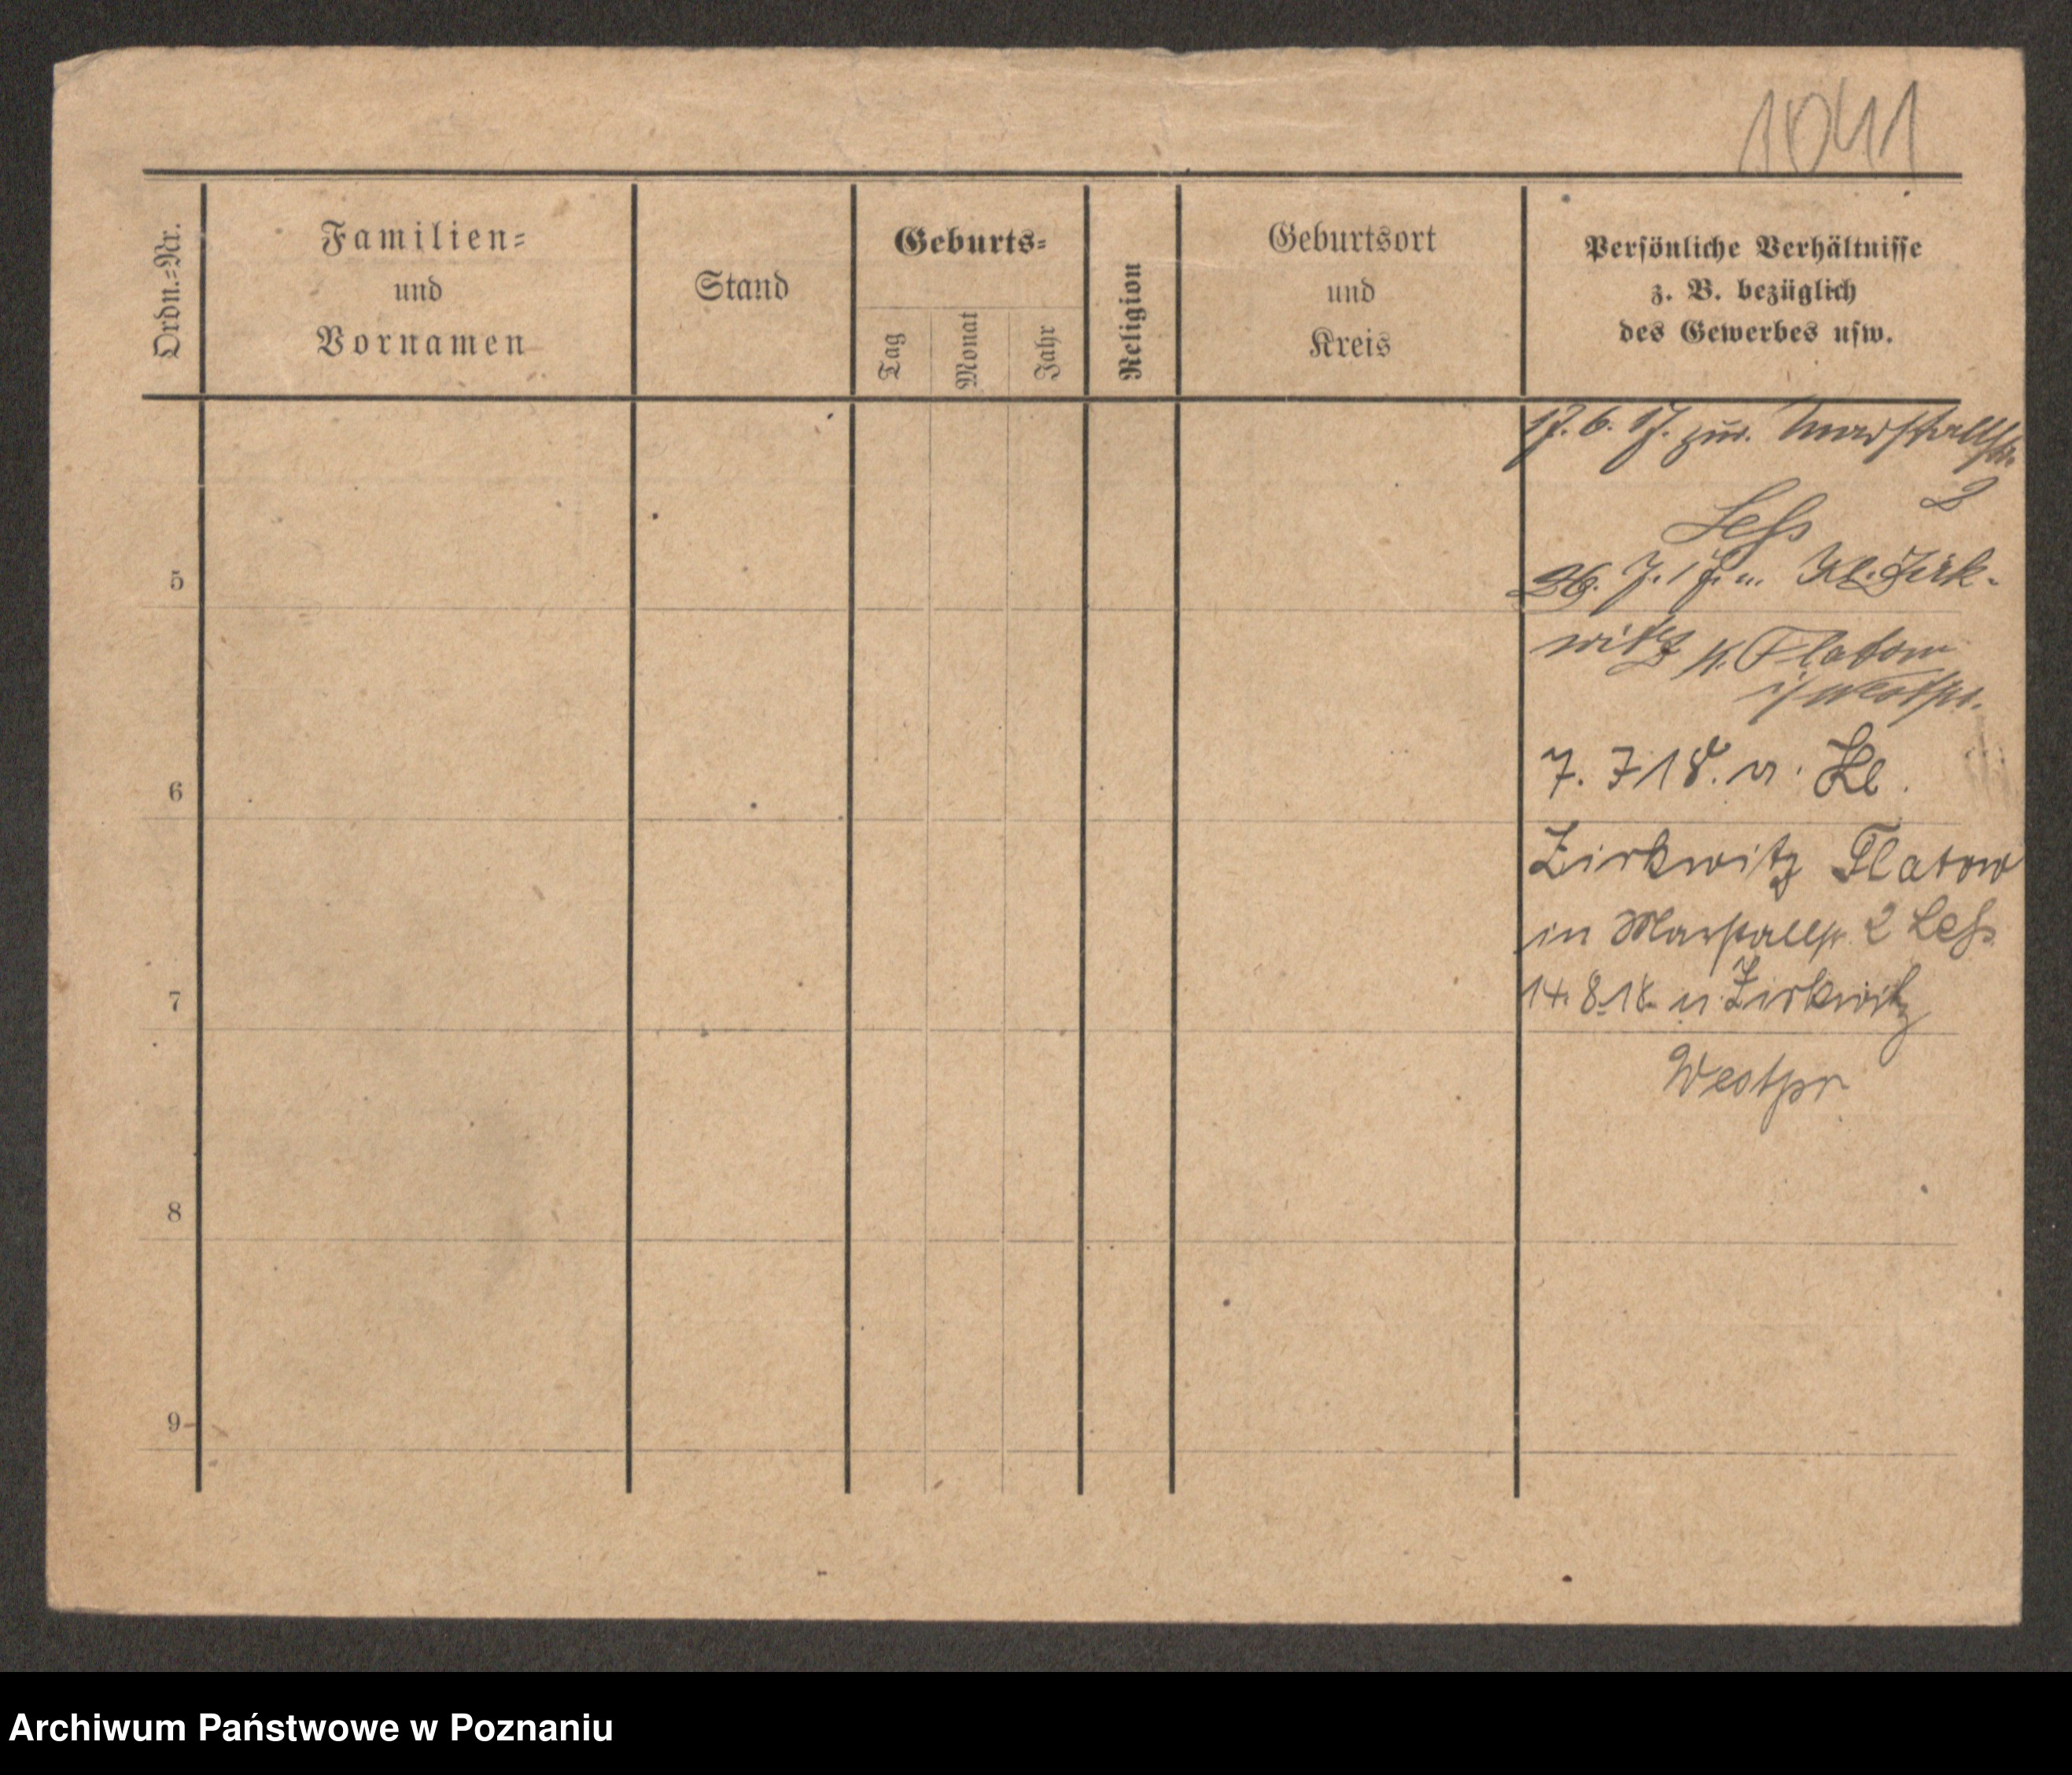 1041
Ordn.=Nr.
Familien=
und
Vornamen
Stand
Geburts=
Tag
Monat
Jahr
Religion
Geburtsort
und
Kreis
Persönliche Verhältnisse
z. B. bezüglich
des Gewerbes usw.
17. 6. 17. zur. Marstallstr.
2
Leß
5
26. 7. 17. n. Kl. Zirk-
witz K. Flatow
i/ Westpr.
6
7. 7 18. v. Kl.
Zirkwitz Flatow
in Marstallstr 2 Leß
7
14. 8. 18. n Zirkwitz
Westpr
8
9
Archiwum Państwowe w Poznaniu